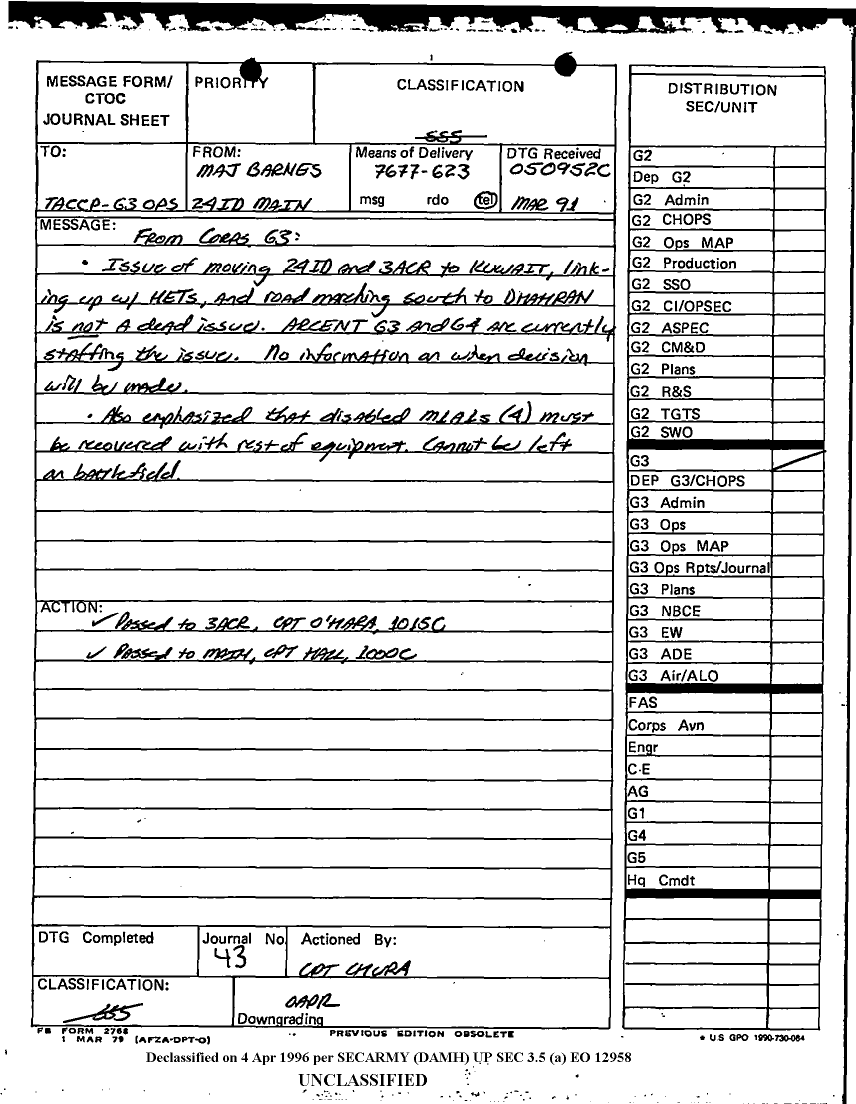 MESSAGE FORM/
CTOC
JOURNAL SHEET
PRIORITY
CLASSIFICATION
SSS
TO:
TACCP-G3 OPS
FROM:
MAJ BARNES
24ID MAIN
Means of Delivery
7677-623
msg rdo tel
DTG Received
050952C
MAR 91
MESSAGE:
From Corps G3:
• Issue of moving 24ID and 3ACR to KUWAIT, link-
ing up w/ HETs, and road marching south to DHAHRAN
is not a dead issue. ARCENT G3 and G4 are currently
staffing the issue. No information on when decision
will be made.
• Also emphasized that disabled M1A1s (4) must
be recovered with rest of equipment. Cannot be left
on battlefield.
ACTION:
✓ Passed to 3ACR, CPT O'HARA, 1015C
✓ Passed to MAIN, CPT HALL, 1000C
DTG Completed
Journal No.
43
Actioned By:
CPT CHURA
CLASSIFICATION:
SSS
OADR
Downgrading
FB FORM 2768
1 MAR 79 (AFZA-DPT-O)
PREVIOUS EDITION OBSOLETE
DISTRIBUTION
SEC/UNIT
G2
Dep G2
G2 Admin
G2 CHOPS
G2 Ops MAP
G2 Production
G2 SSO
G2 CI/OPSEC
G2 ASPEC
G2 CM&D
G2 Plans
G2 R&S
G2 TGTS
G2 SWO
G3
DEP G3/CHOPS
G3 Admin
G3 Ops
G3 Ops MAP
G3 Ops Rpts/Journal
G3 Plans
G3 NBCE
G3 EW
G3 ADE
G3 Air/ALO
FAS
Corps Avn
Engr
C-E
AG
G1
G4
G5
Hq Cmdt
* U.S GPO 1990-730-084
Declassified on 4 Apr 1996 per SECARMY (DAMH) UP SEC 3.5 (a) EO 12958
UNCLASSIFIED